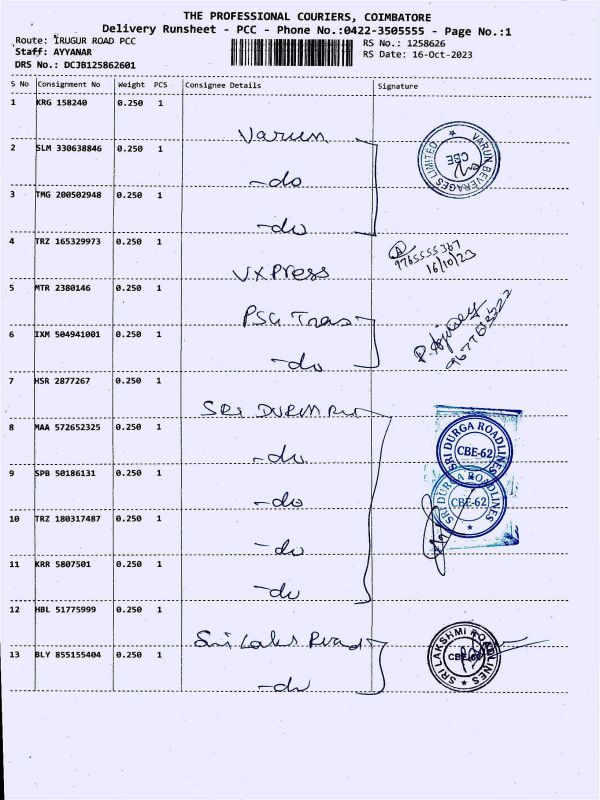 THE PROFESSIONAL COURIERS, COIMBATORE
Delivery Runsheet - PCC - Phone No.:0422-3505555 - Page No.:1
Route: IRUGUR ROAD PCC
Staff: AYYANAR
DRS No.: DCJB125862601
RS No.: 1258626
RS Date: 16-Oct-2023
S No Consignment No Weight PCS Consignee Details Signature
1 KRG 158240 0.250 1 Varun
2 SLM 330638846 0.250 1 -do
3 TMG 200502948 0.250 1 -do
VARUN BEVERAGES LIMITED
CBE
4 TRZ 165329973 0.250 1 VXPress
9765555367
16/10/23
5 MTR 2380146 0.250 1 PSG Trans
6 IXM 504941001 0.250 1 -do
7 HSR 2877267 0.250 1 SRI
8 MAA 572652325 0.250 1 -do
9 SPB 50186131 0.250 1 -do
10 TRZ 180317487 0.250 1 -do
11 KRR 5807501 0.250 1 -do
SRI DURGA ROADLINES
CBE-62
SRI DURGA ROADLINES
CBE-62
12 HBL 51775999 0.250 1 Sri Laks Road
13 BLY 855155404 0.250 1 -do
SRI LAKSHMI ROADLINES